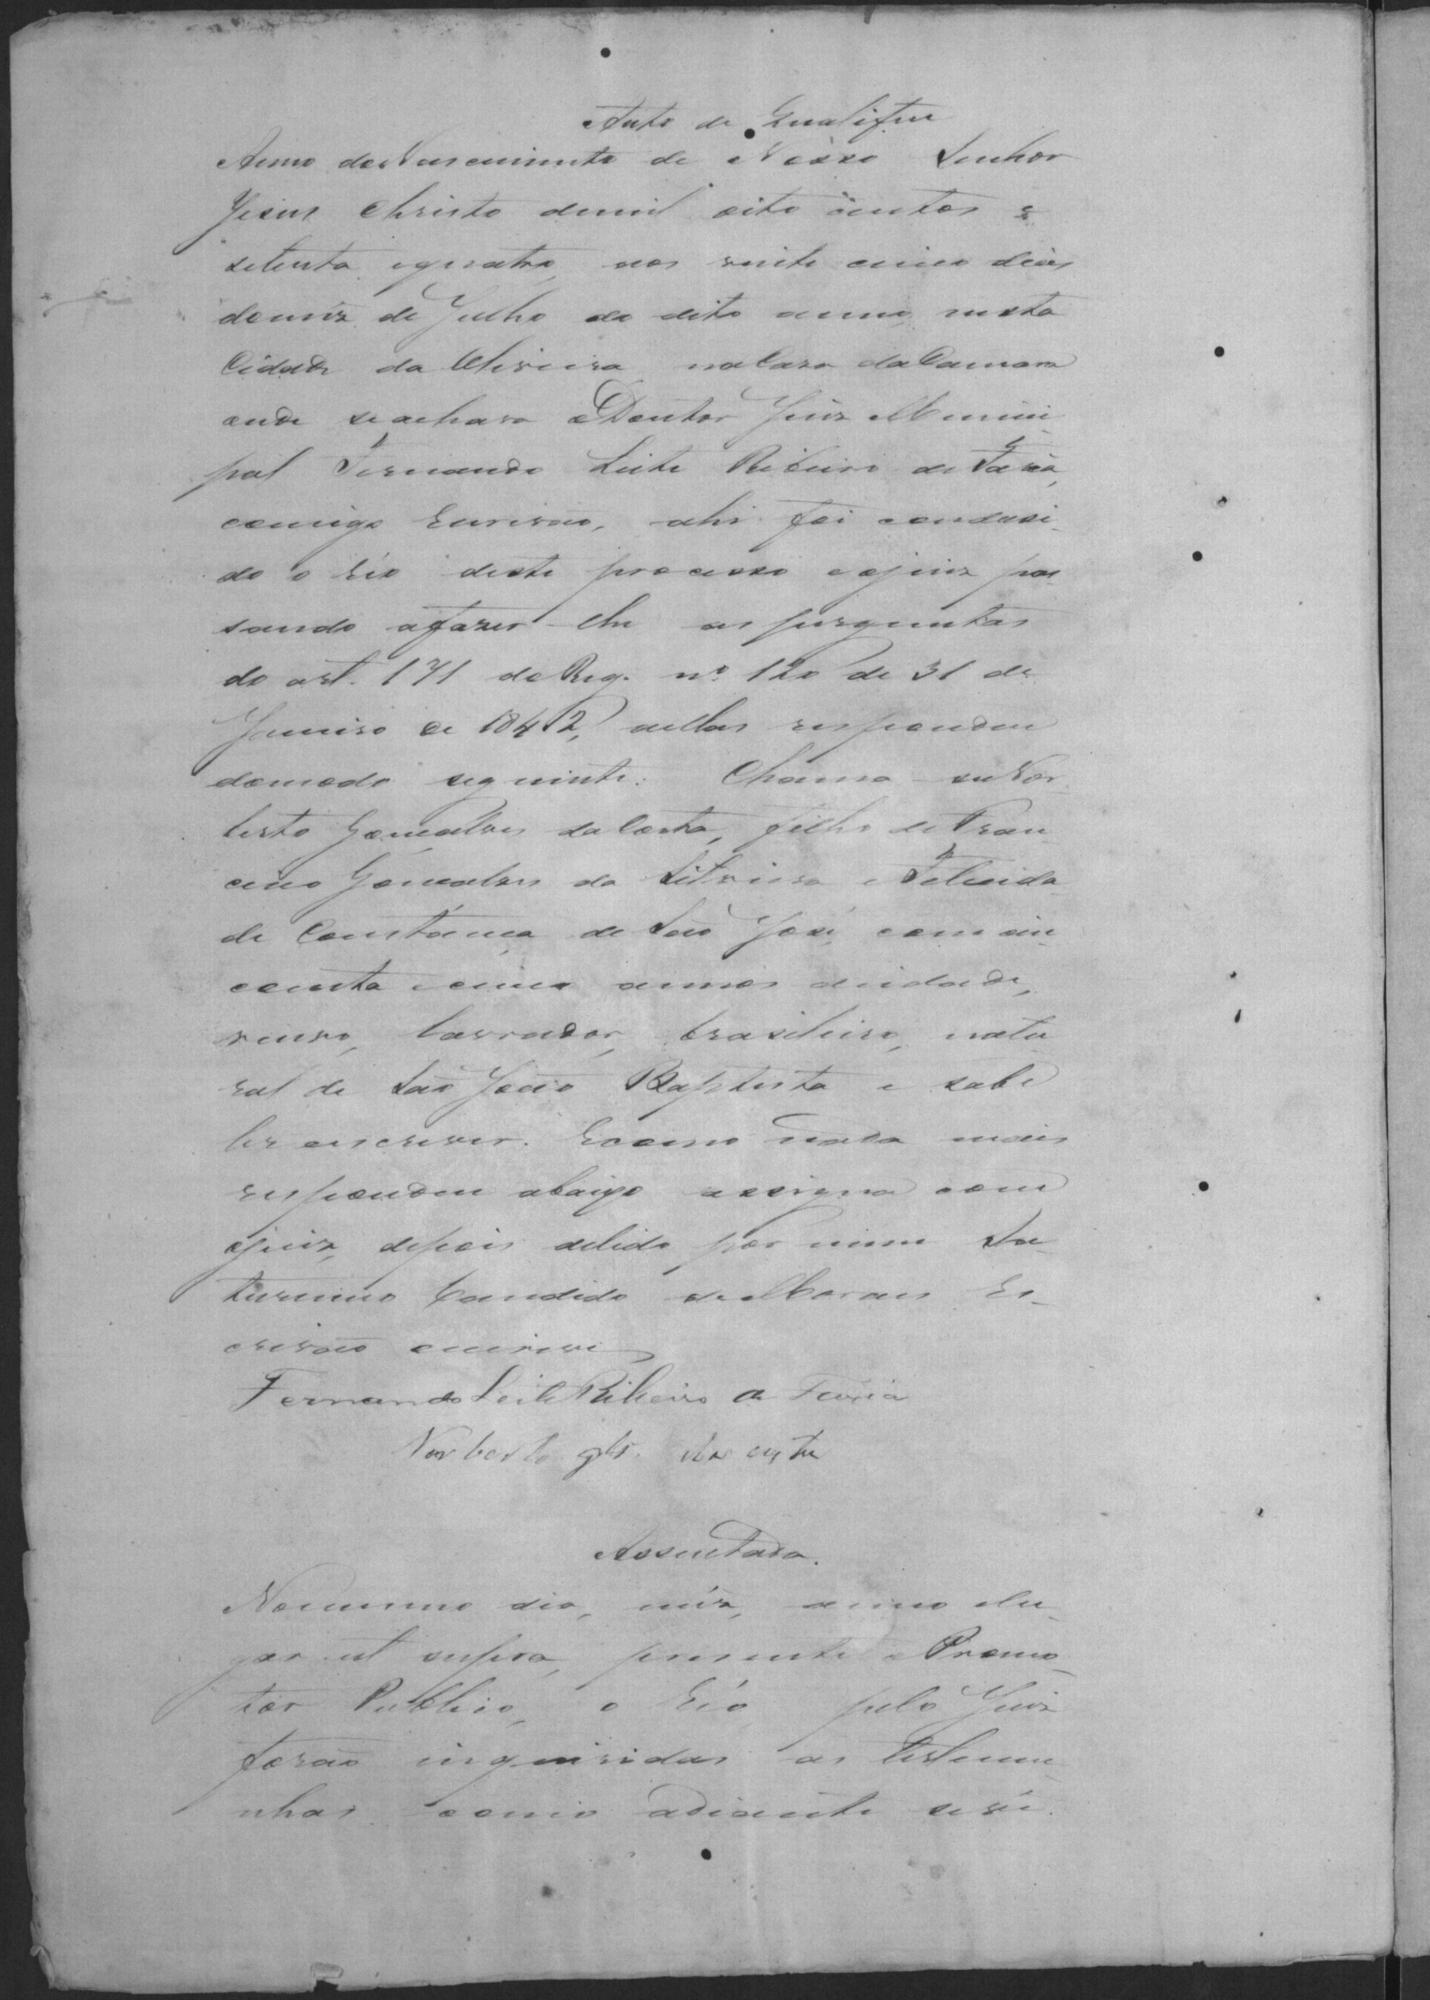 Auto de Qualifica
Anno do Nascimento de Nosso Senhor
Jesus Christo demil oito centos e
setenta equatro, aos vinte cinco dias
domêz de Julho do dito anno, nesta
Cidade da Oliveira na Casa da Camara
onde se achava o Doutor Juiz Munici-
pal Fernando Leite Ribeiro de Faria,
comigo Escrivão, ahi foi condusi-
do o réo deste processo e o juiz pas
sando a fazer-lhe as perguntas
do art. 171 do Reg. nº 120 de 31 de
Janeiro de 1842, aellas respondeu
domodo seguinte: Chama-se Nor
berto Gonçalves da Costa, filho de Fran
cisco Gonçalves da Silveira e Felicida
de Constancia de São José, com cin
coenta e cinco annos deidade,
viuvo, lavrador, brasileiro, natu
ral de São João Baptista e sabe
ler e escrever. Ecomo nada mais
respondeu abaixo assigna com
ojuiz, depois delido por mim Sa-
turnino Candido de Moraes Es-
crivão escrevi
Fernando Leite Ribeiro de Faria
Norberto glz. da costa
Assentada.
Nomesmo dia, mêz, anno elu-
gar ut supra, presente o Promo-
tor Publico, o réo, pelo Juiz
forão inqueridas as testemu-
nhas como adiante se vê.